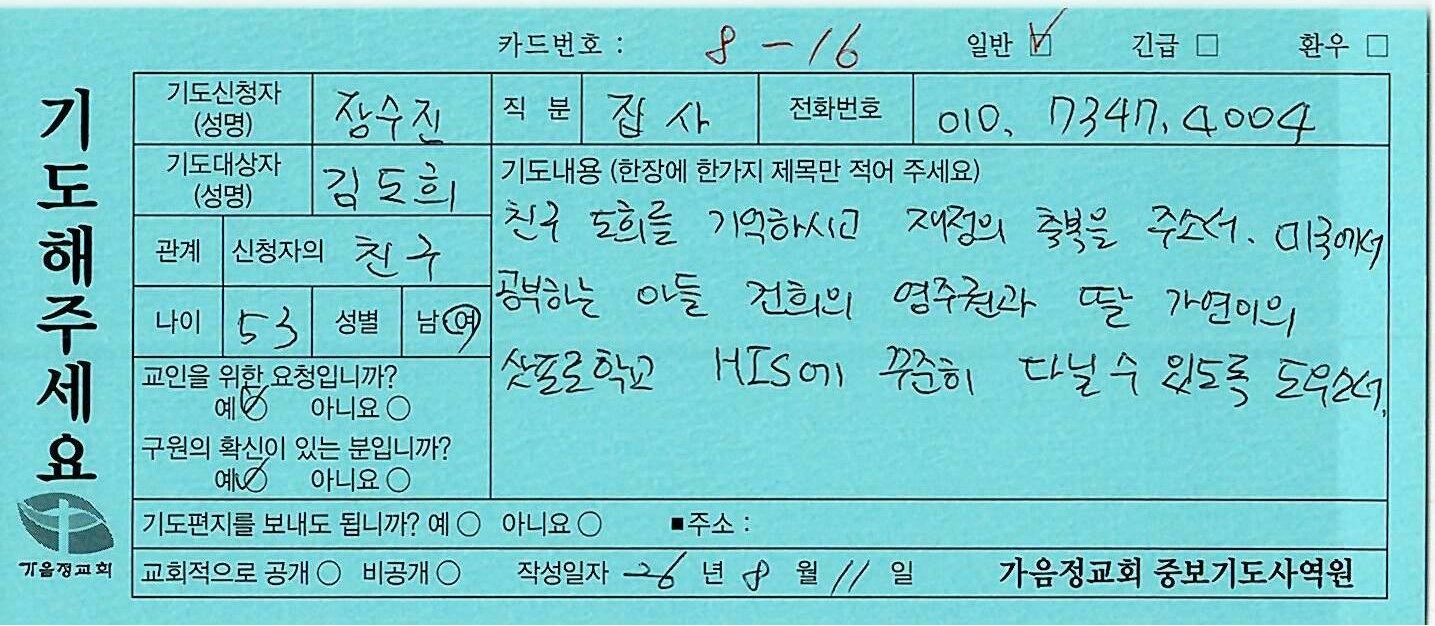 카드번호 : 8-16 일반 ☑ 긴급 □ 환우 □
기도해주세요
기도신청자 (성명) 장수진 직 분 집사 전화번호 010. 7347. 4004
기도대상자 (성명) 김도희
관계 신청자의 친구
나이 53 성별 남 여
교인을 위한 요청입니까?
예 ○ 아니요 ○
구원의 확신이 있는 분입니까?
예 ○ 아니요 ○
기도내용 (한장에 한가지 제목만 적어 주세요)
친구 도희를 기억하시고 재정의 축복을 주소서. 미국에서
공부하는 아들 건희의 영주권과 딸 가연이의
삿포로학교 HIS에 꾸준히 다닐 수 있도록 도우소서.
기도편지를 보내도 됩니까? 예 ○ 아니요 ○ ■주소 :
교회적으로 공개 ○ 비공개 ○ 작성일자 26 년 8 월 11 일 가음정교회 중보기도사역원
가음정교회